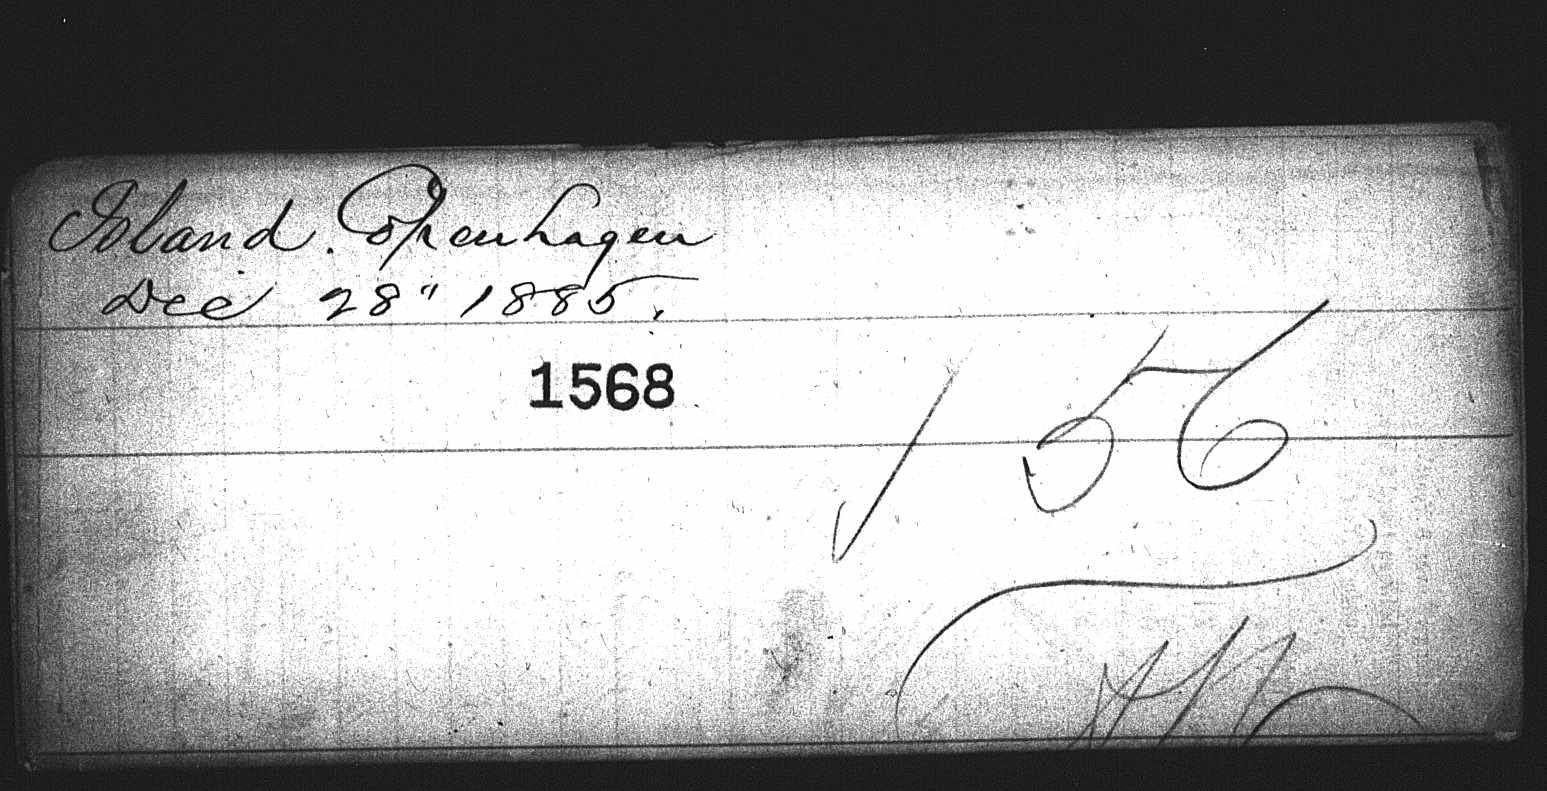 Island. Copenhagen
Dec 28" 1885.
1568
156